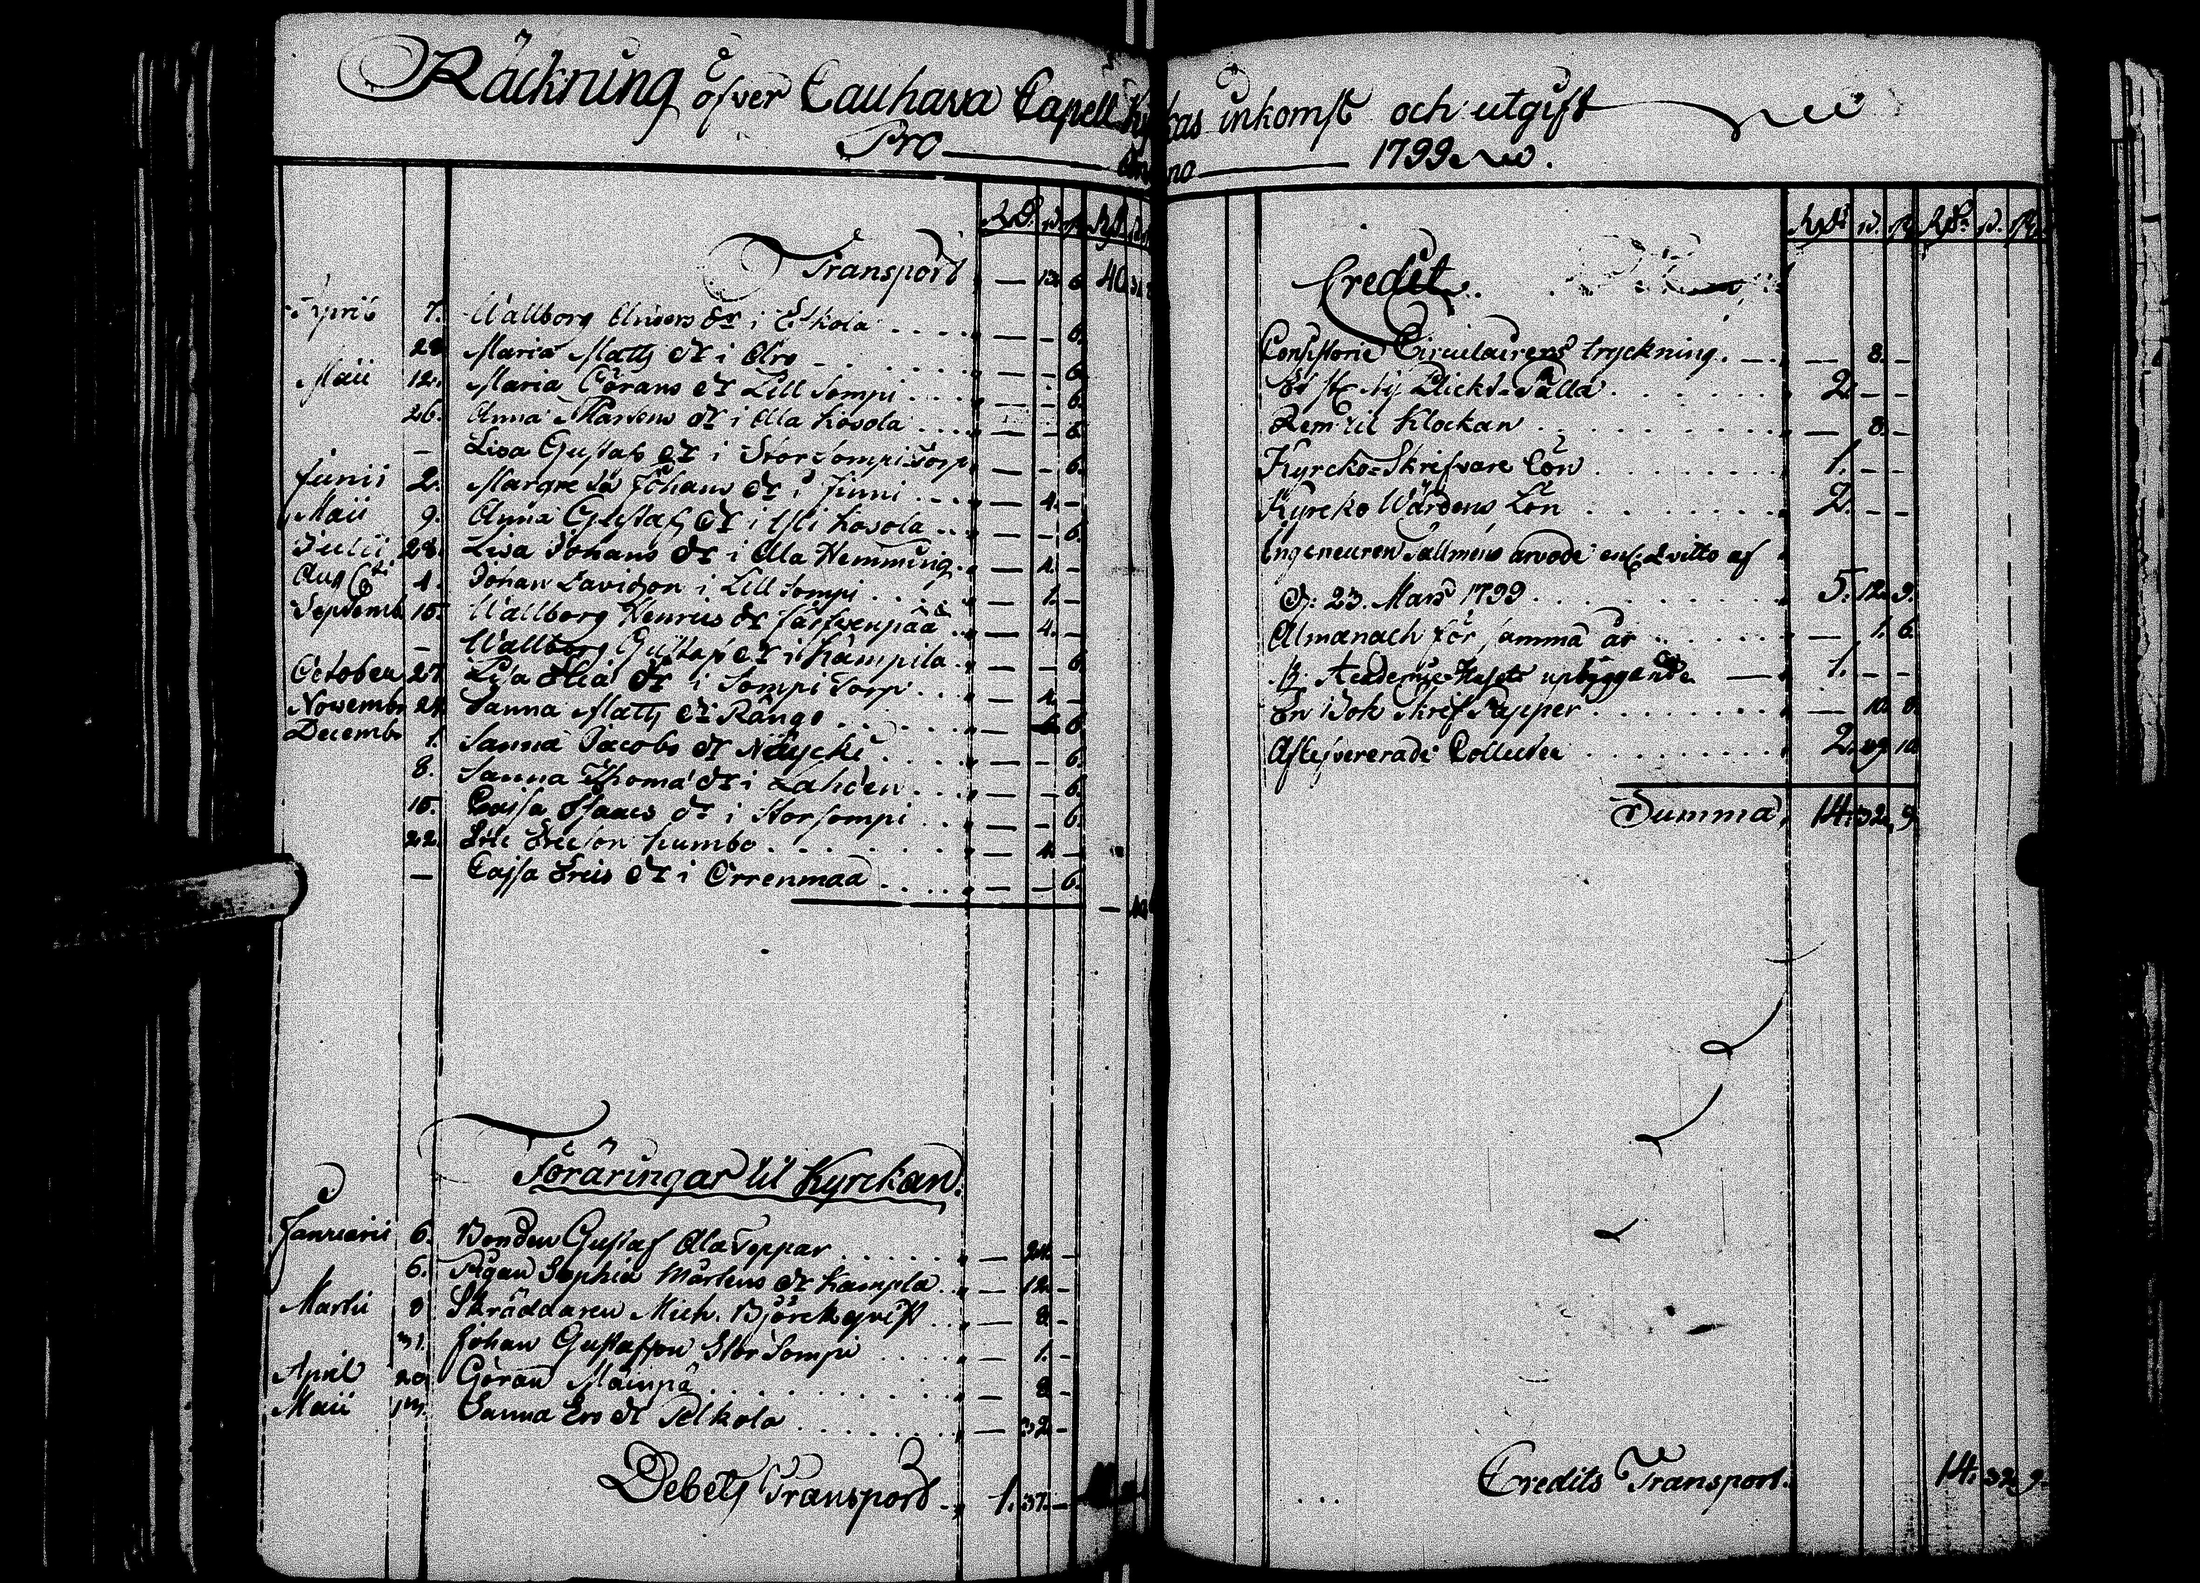 Räckning öfver Cauhava Capell Kyrkas inkomst och utgift
Pro Anno 1799.
Rd. s. r. Rd.
Transport — 13. 6. 40
April 7. Wallborg Anders dr i Eskola — — 6.
28 Maria Matts dr i Alro — — 6.
Maii 12. Maria Görans dr Lill Sompi — — 6.
26. Anna Martens dr i Ala Kosola — — 6.
— Lisa Gustafs dr i Stor Sompi Torp — — 6.
Junii 2. Margreta Johans dr i Junni — 4. —
Maii 9. Anna Gustafs dr i Ylli Kosola — — 6.
Julii 28. Lisa Johans dr i Ala Hemming — 4. —
Aug 4. Johan Davidson i Lill Sompi — 1. —
Septemb 15. Wallborg Henrics dr Järfvenpää — 4. —
— Wallborg Gustafs dr i Kämpila — — 6.
October 27 Lisa Elia dr i Sompi Torp — 4. —
Novembr 24. Sanna Matts dr Rango — 6
Decembr 1. Sanna Jacobs dr Näycki — — 6.
8. Sanna Thoma dr i Lahden — — 6.
15. Cajsa Isaacs dr i Storsompi — — 6.
22. Ericson Kumbo — 4. —
— Cajsa Erics dr i Orrenmaa — — 6.
Föräringar til Kyrckan.
Januarii 6. Bonden Gustaf Ala Toppar — 24. —
6. Pigan Sophia Mårtens dr Kampla — 12. —
Martii 3 Skräddaren Mich. Björckqvist — 8. —
31. Johan Gustafson Stor Sompi — 1. —
April 20. Göran Mäinpä — 8 —
Maii 13. Sanna Ers dr Pelkola — 32. —
Debets Transport 1. 37. —
Rd. s. r. Rd. s. r.
Credit.
Consistorie Circulairens tryckning. — 8. —
Et st. Ny Plickt-Palla 2. — —
Rem til Klockan — 8. —
Kyrcko-Skrifvare Lön 1. — —
Kyrcko Wärdens Lön 2. — —
Ingeneuren Tallmens arvode enl. Qvitto af
d. 23. Mars 1799 5. 12. 9.
Almanach för samma år — 1. 6.
Academie Husets upbyggande 1. — —
En Bok Skrif Papper — 10. 8.
Aflefvererade Collecter 2. 39 10
Summa 14. 32. 9
Credits Transport. 14. 32 9.